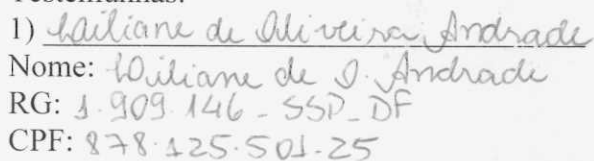 Testemunhas:
1) Wiliane de Oliveira Andrade
Nome: Wiliane de O. Andrade
RG: 1.909.146 - SSP_DF
CPF: 878.125.501-25